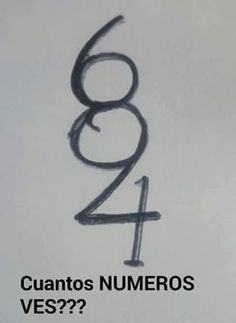 6
9
4
Cuantos NUMEROS
VES???